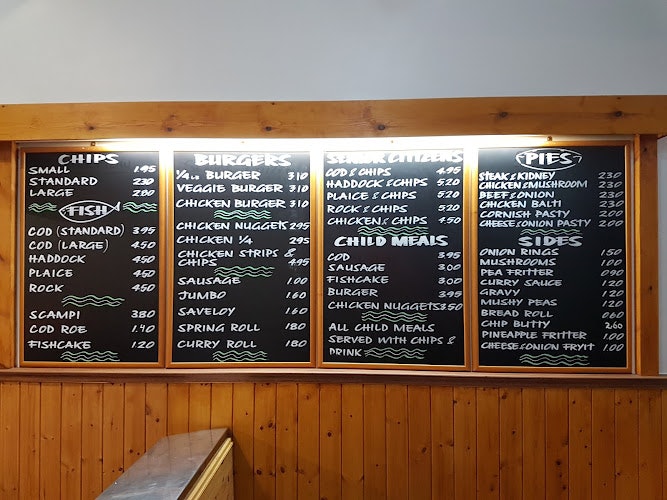 CHIPS
SMALL 1.95
STANDARD 230
LARGE 280
FISH
COD (STANDARD) 395
COD (LARGE) 450
HADDOCK 450
PLAICE 450
ROCK 450
SCAMPI 380
COD ROE 1.40
FISHCAKE 120
BURGERS
1/4 LB BURGER 310
VEGGIE BURGER 310
CHICKEN BURGER 310
CHICKEN NUGGETS 295
CHICKEN 1/4 295
CHICKEN STRIPS &
CHIPS 495
SAUSAGE 1.00
JUMBO 1.60
SAVELOY 1.60
SPRING ROLL 180
CURRY ROLL 180
SENIOR CITIZENS
COD & CHIPS 4.95
HADDOCK & CHIPS 5.20
PLAICE & CHIPS 5.20
ROCK & CHIPS 5.20
CHICKEN & CHIPS 4.50
CHILD MEALS
COD 3.95
SAUSAGE 3.00
FISHCAKE 3.00
BURGER 3.95
CHICKEN NUGGETS 3.50
ALL CHILD MEALS
SERVED WITH CHIPS &
DRINK
PIES
STEAK & KIDNEY 230
CHICKEN & MUSHROOM 230
BEEF & ONION 230
CHICKEN BALTI 230
CORNISH PASTY 200
CHEESE & ONION PASTY 200
SIDES
ONION RINGS 1.50
MUSHROOMS 1.00
PEA FRITTER 090
CURRY SAUCE 1.20
GRAVY 1.20
MUSHY PEAS 1.20
BREAD ROLL 060
CHIP BUTTY 2.60
PINEAPPLE FRITTER 1.00
CHEESE & ONION FRYIT 1.00